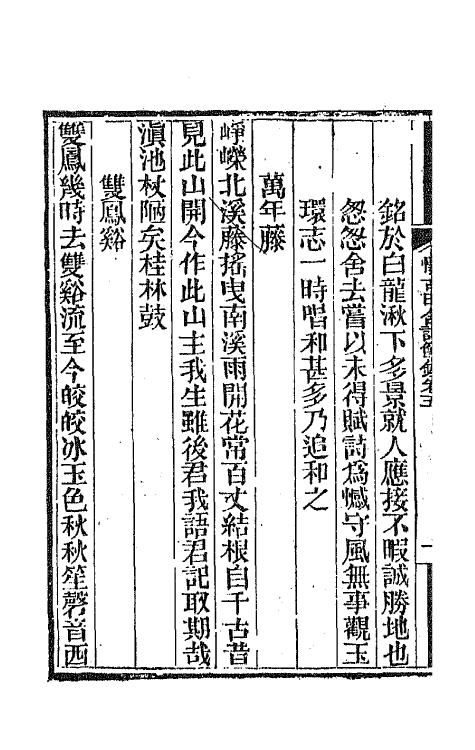 銘於白龍湫下多景就人應接不暇誠勝地也
怱怱舍去嘗以未得賦詩爲憾守風無事觀玉
環志一時唱和甚多乃追和之
萬年藤
崢嶸北溪藤搖曳南溪雨開花常百丈結根自千古昔
見此山開今作此山主我生雖後君我語君記取期哉
滇池杖陋矣桂林鼓
雙鳳谿
雙鳳幾時去雙谿流至今皎皎冰玉色秋秋笙磬音西